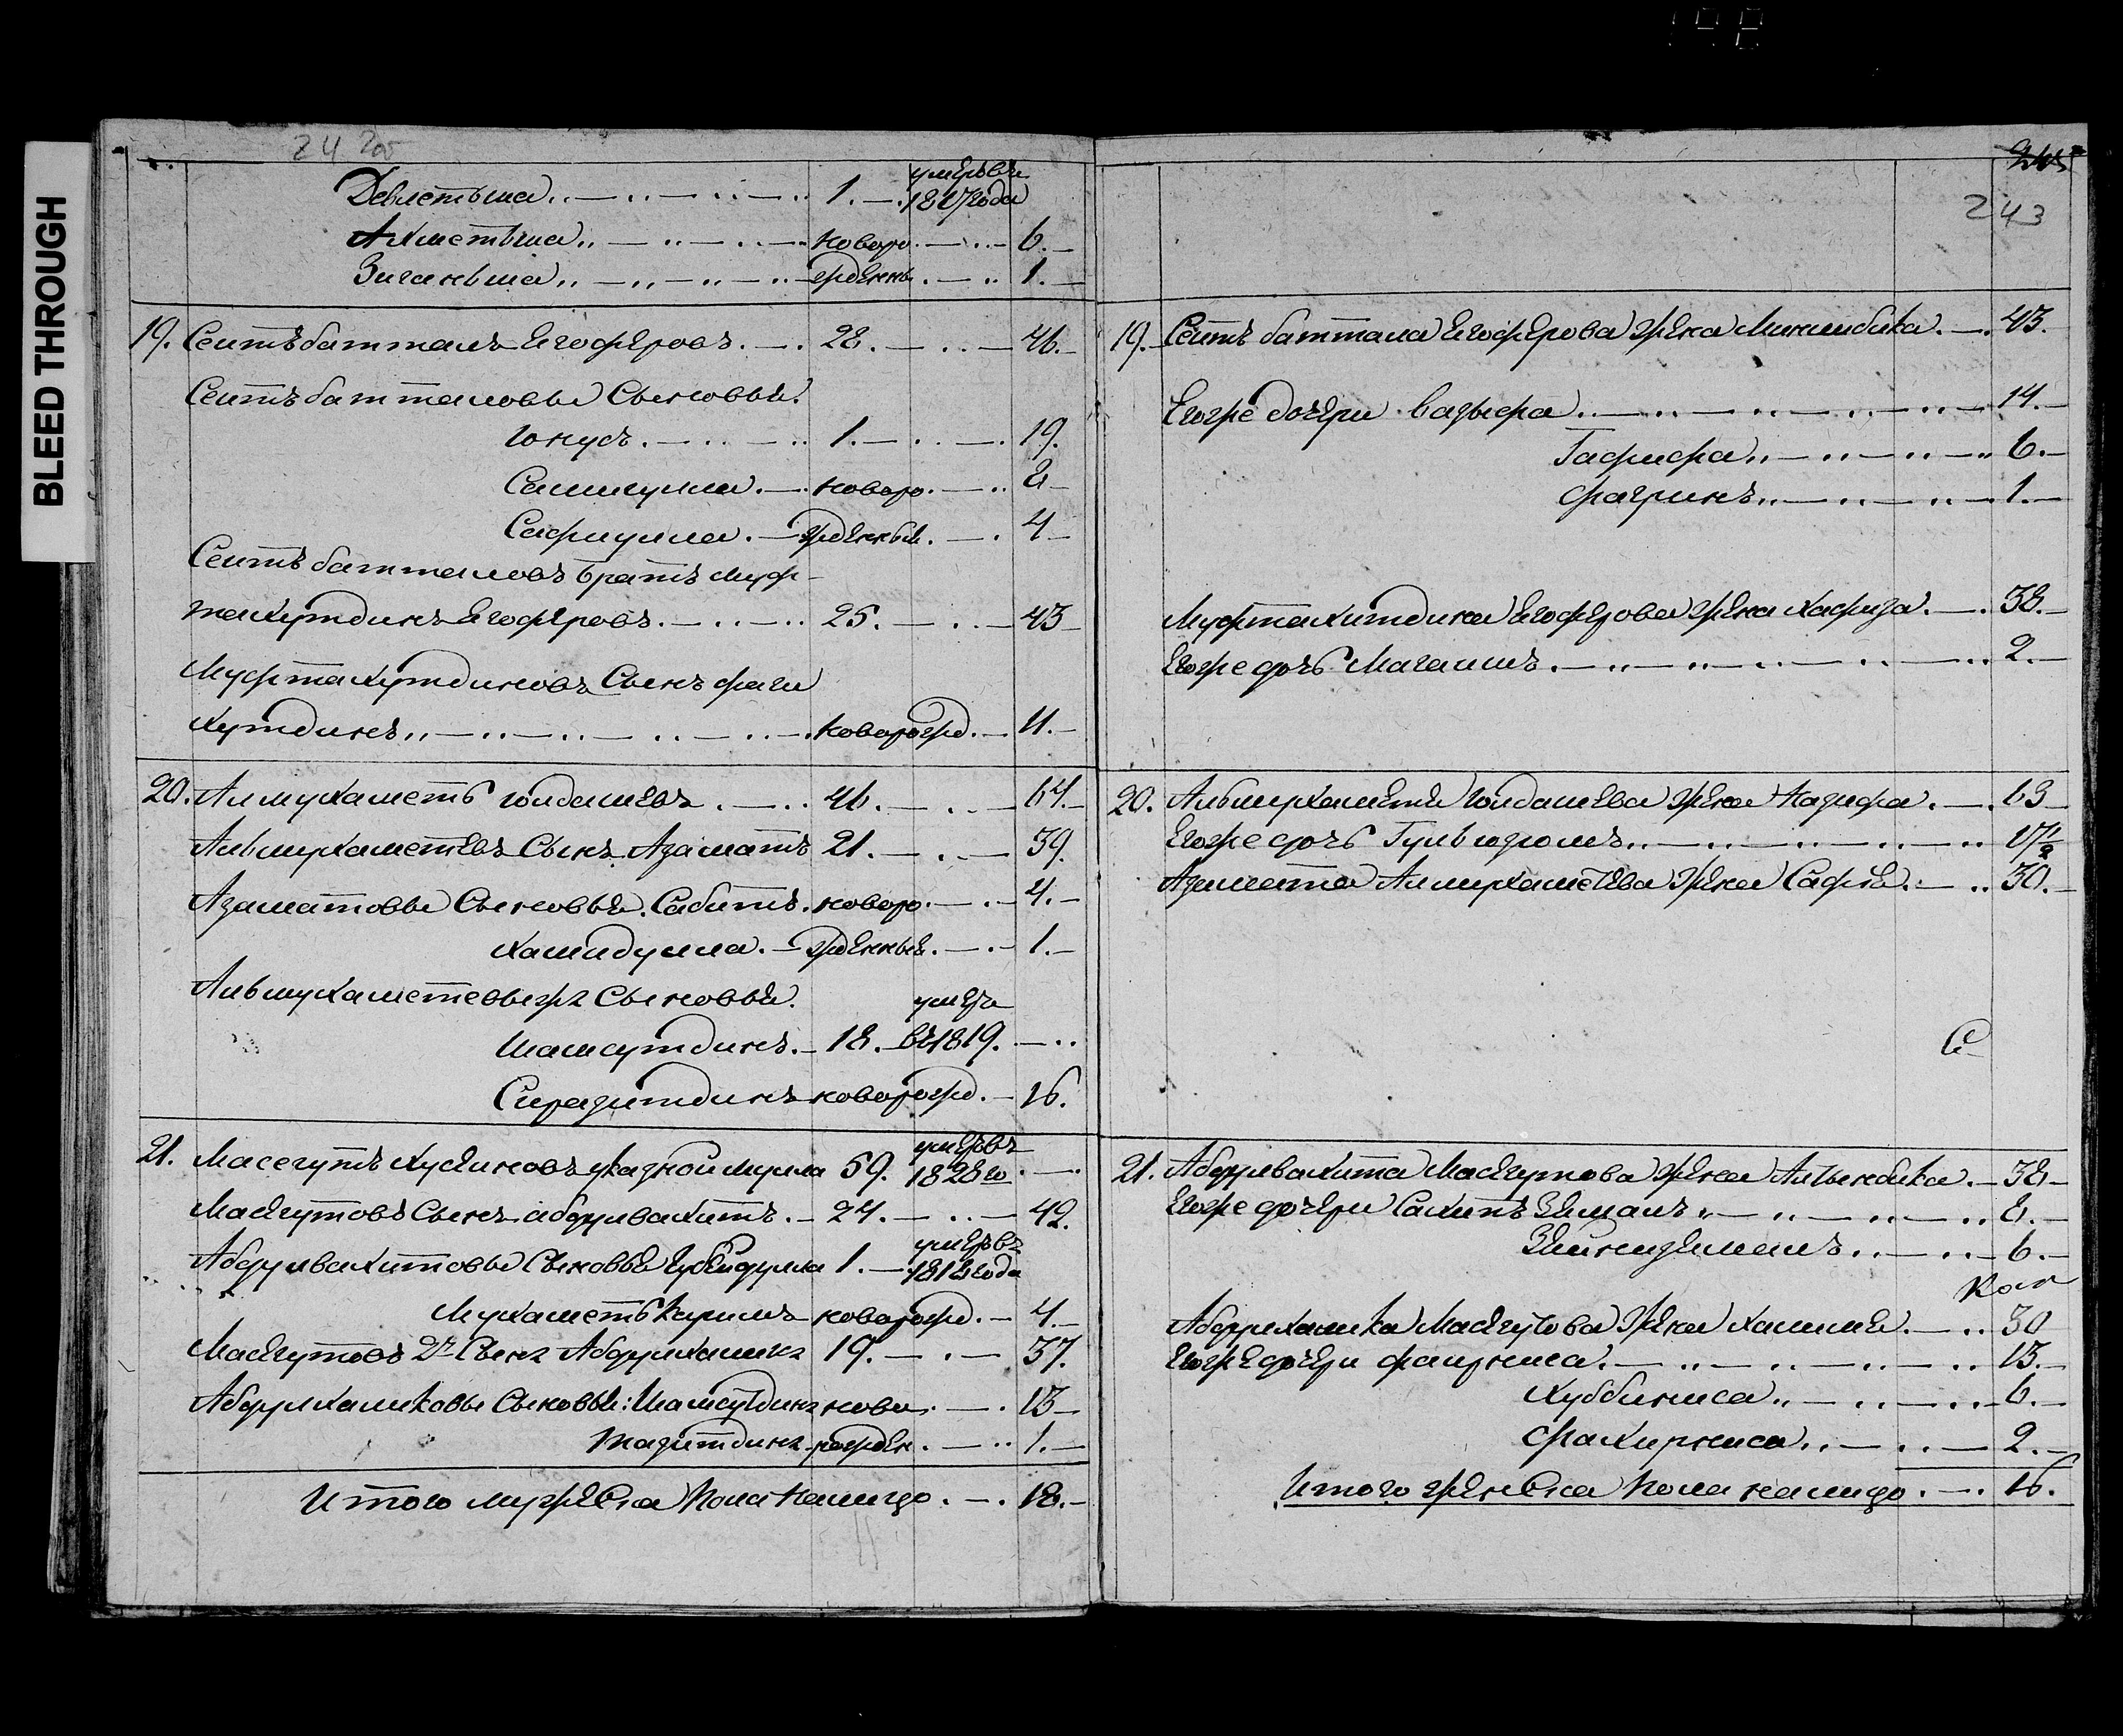 BLEED THROUGH
Девлетьша 1. умеръ въ 1817 года
Ахметьша новоро 6.
Зиганьша жденны 1.
19. Сеитъ батталъ Ягоферовъ 28. 46.
Сеитъ батталовы Сыновья:
Юнусъ 1. 19.
Самигулла новоро 8
Сафиулла жденныя 4
Сеитъ батталовъ братъ Муф-
тахутдинъ Ягоферовъ 25. 43
Муфтахутдиновъ Сынъ Фаги
хутдинъ новорожд. 11.
20. Алмухаметь Юлдашевъ 46. 64.
Альмухаметевъ Сынъ Азаматъ 21. 39.
Азаматовы Сыновья: Сабитъ новоро 4.
Хамидулла жденныя 1.
Альмухаметевы же 2 Сыновья:
умеръ
Шамсутдинъ 18. въ 1819.
Сиразитдинъ новорожд. 16.
21. Масегутъ Хусяиновъ указной мулла 59. умеръ въ 1828 го
Масягутовъ Сынъ абдулвахитъ 24. 42.
Абдулвахитовы Сыновья Губейдулла 1. умеръ въ 1818 года
Мухаметь Каримъ новорожд. 4.
Масягутовъ 2й Сынъ Абдулхаликъ 19. 37.
Абдулхаликовы Сыновья: Шамсутдинъ ново 13
Тазитдинъ рожден. 1.
Итого мужеска пола налицо 18.
243
19. Сеитъ баттала Ягоферова жена Минлибика 43.
Егоже дочери Вазыфа 14.
Гафифа 6.
Фагринъ 1.
Муфтахитдина Ягоферова жена Хафиза 38.
Егоже дочь Магалимъ 2.
20. Альмухаметя Юлдашева жена Назифа 63
Егоже дочь Гульюзюмъ 17 1/2
Азамета Алмухаметева жена Сафия 30.
21. Абдулвахита Масягутова жена Алтынбика 38
Егоже дочери Сахипъ Зямалъ 8.
Зяйнизямалъ 6.
Абдулхалика Масягутова жена Халима 30
Егоже дочери Фаирниса 13.
Хуббиниса 6.
Фахирниса 2.
Итого женска пола налицо 16.